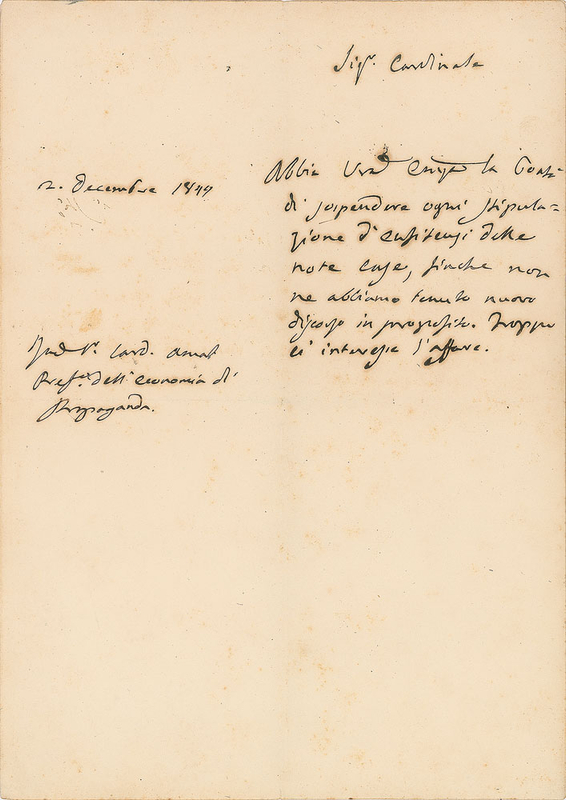 Sigr. Cardinale
2. Decembre 1844
Abbia Vra Emza la Bontà
di sospendere ogni stipula=
zione d'enfiteusi delle
note case, finche non
ne abbiamo tenuto nuovo
discorso in proposito. Troppo
ci interessa l'affare.
Sigr. Card. Amat
Prefo. dell'economia di
Propaganda.